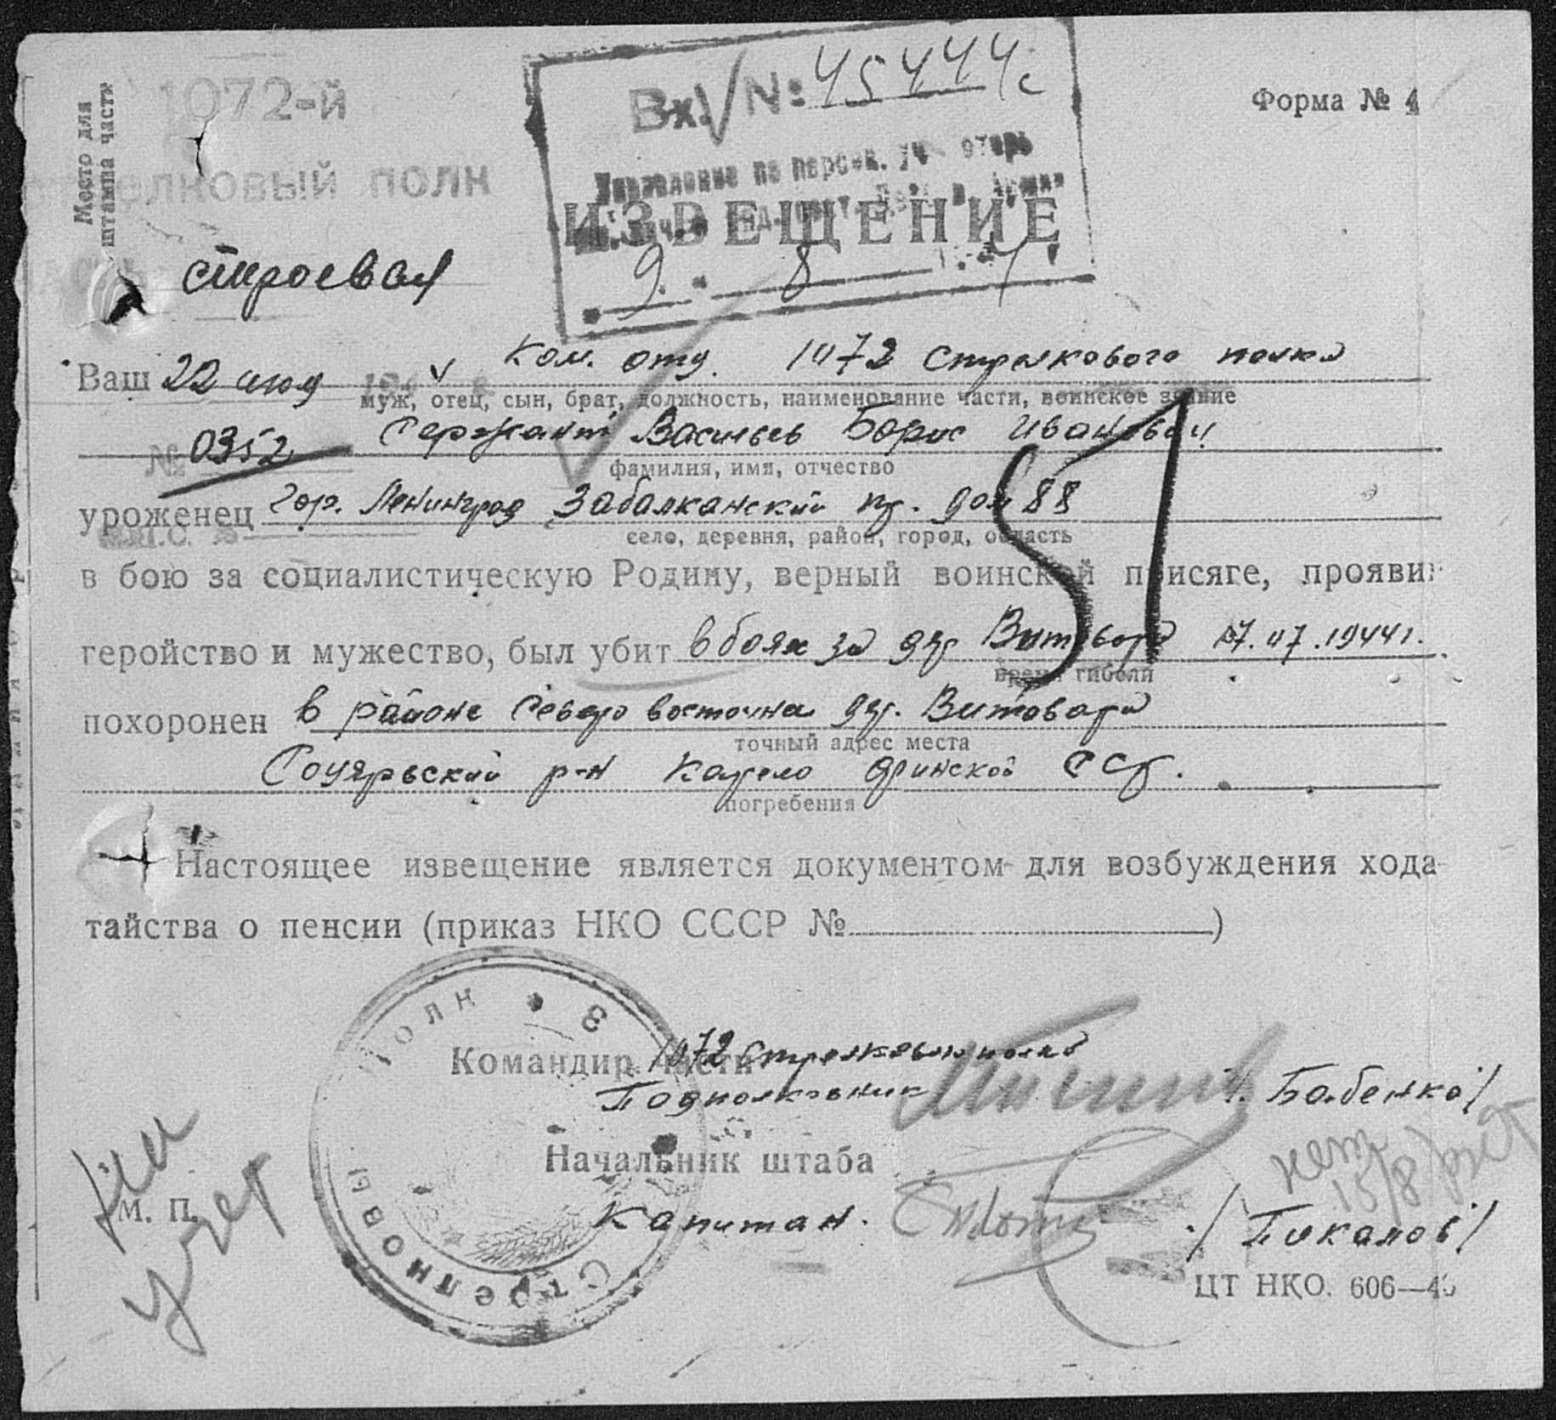 Место для
штампа части
1072-й
Вх. № 45444с
Форма № 4
Управление по персон.
полк
9. 8
ИЗВЕЩЕНИЕ
строевая
Ваш 22 июл Ком. отд. 1072 стрелкового полка
муж, отец, сын, брат, должность, наименование части, воинское звание
№ 0352 Сержант Васильев Борис Иванович
фамилия, имя, отчество
51
уроженец гор. Ленинград Забалканский пр. дом 88
село, деревня, район, город, область
в бою за социалистическую Родину, верный воинской присяге, прояви
геройство и мужество, был убит в боях за дер Витовара 17.07.1944г.
время гибели
похоронен в районе Северо восточнее дер. Витовара
точный адрес места
Соуярьский р-н Карело финской ССР.
погребения
Настоящее извещение является документом для возбуждения хода
тайства о пенсии (приказ НКО СССР № )
Командир части 1072 стрелкового полка
Подполковник Бабенко/
Начальник штаба
нет
15/8
М. П. Капитан. /Пикалов/
учет
ЦТ НКО. 606—43
Стрелковый Полк